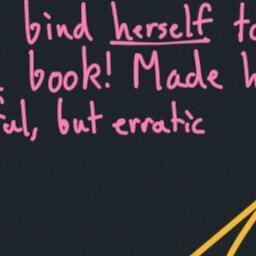 bind herself to
book! Made
but erratic